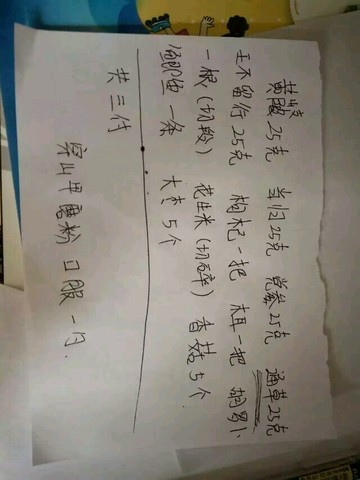 黄芪25克 当归25克 党参25克 通草25克
王不留行25克 枸杞一把 木耳一把 胡萝卜
一根(切段) 花生米(切碎) 香菇5个
鲫鱼一条 大枣5个
共三付
穿山甲磨粉 口服一月.